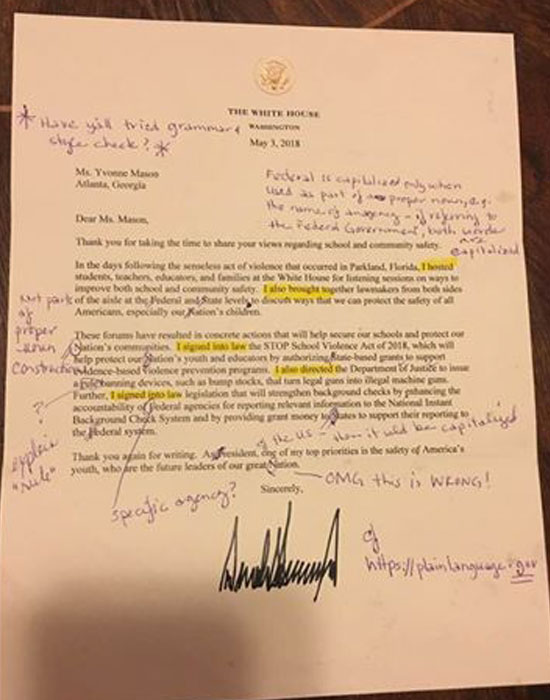 THE WHITE HOUSE
WASHINGTON
May 3, 2018
* Have y'all tried grammar &
style check? *
Ms. Yvonne Mason
Atlanta, Georgia
Federal is capitalized only when
used as part of a proper noun, e.g.
the name of an agency - if referring to
the Federal Government, both words
are
capitalized
Dear Ms. Mason,
Thank you for taking the time to share your views regarding school and community safety.
In the days following the senseless act of violence that occurred in Parkland, Florida, I hosted
students, teachers, educators, and families at the White House for listening sessions on ways to
improve both school and community safety. I also brought together lawmakers from both sides
of the aisle at the Federal and State levels to discuss ways that we can protect the safety of all
Americans, especially our Nation's children.
Not part
of
proper
noun
Construction
These forums have resulted in concrete actions that will help secure our schools and protect our
Nation's communities. I signed into law the STOP School Violence Act of 2018, which will
help protect our Nation's youth and educators by authorizing State-based grants to support
evidence-based violence prevention programs. I also directed the Department of Justice to issue
a rule banning devices, such as bump stocks, that turn legal guns into illegal machine guns.
Further, I signed into law legislation that will strengthen background checks by enhancing the
accountability of Federal agencies for reporting relevant information to the National Instant
Background Check System and by providing grant money to States to support their reporting to
the Federal system.
?
explain
"rule"
of the US - then it would be capitalized
Thank you again for writing. As President, one of my top priorities is the safety of America's
youth, who are the future leaders of our great Nation.
OMG this is WRONG!
Sincerely,
specific agency?
cf
https://plainlanguage.gov